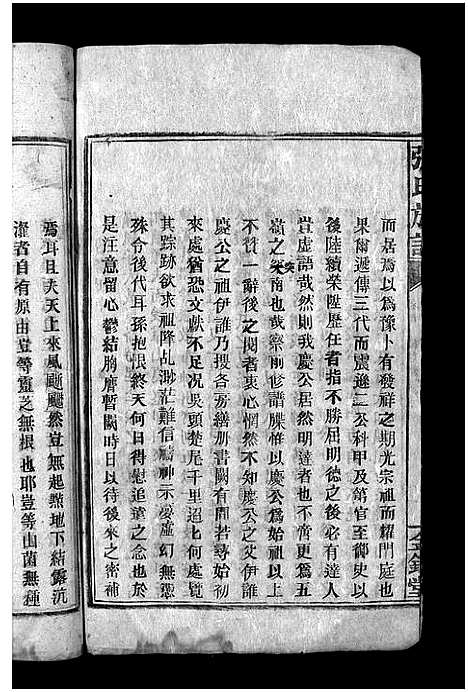 張氏族譜
而居焉以爲豫卜有發祥之期光宗祖而耀門庭也
果爾遞傳三代而震遜二公科甲及第官至御史以
後陸續榮陞歷任者指不勝屈明德之後必有達人
豈虛語哉然則我慶公居然明達者也不啻更爲五
嶺之南也哉前則修譜牒惟以慶公爲始祖以上
不贅一辭後之閱者衷心惘然不知慶公之父伊誰
慶公之祖伊誰乃搜各房繕册書闕有間若尋始初
來處猶恐文獻不足况吳頭楚尾千里迢七何處覽
其踪跡欲求祖降乩渺茫難信禱神示夢虛幻無憑
殊令後代耳孫抱恨終天何日得慰追遠之念也於
是注意留心鬱結胸膺暫閣時日以待後來之密補
焉耳且夫天上來風飄飄然豈無起㷊地下結露沆
瀣者自有原由豈等靈芝無根也耶豈等山菌無種